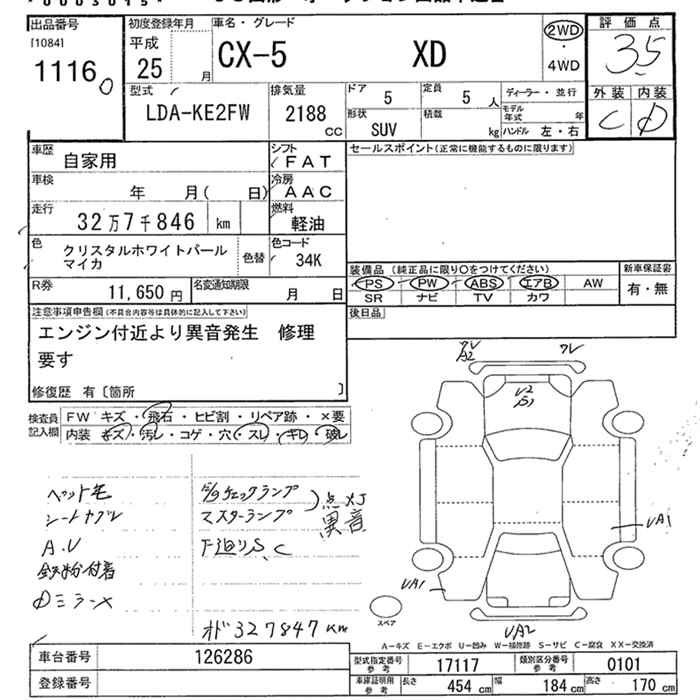 出品番号
[1084]
1116
初度登録年月
平成
25 月
車名・グレード
CX-5 XD
2WD
・
4WD
評価点
3.5
外装 内装
C D
型式
LDA-KE2FW
排気量
2188
CC
ドア
5
定員
5 人
形状
SUV
積載
kg
ディーラー・並行
モデル年式 年
ハンドル 左・右
車歴
自家用
シフト
FAT
車検
年 月( 日)
冷房
AAC
走行
32万7千846 km
燃料
軽油
色
クリスタルホワイトパール
マイカ
色替
色コード
34K
R券
11,650 円
名変通知期限
月 日
セールスポイント(正常に機能するものに限ります)
装備品(純正品に限り〇をつけてください)
PS PW ABS エアB AW
SR ナビ TV カワ
新車保証書
有・無
後日品
注意事項申告欄(不具合内容等は具体的に記入して下さい)
エンジン付近より異音発生 修理
要す
修復歴 有〔箇所 〕
検査員
記入欄
FW キズ・飛石・ヒビ割・リペア跡・×要
内装 キズ・汚レ・コゲ・穴・スレ・キレ・破レ
ペット毛
A.U
鉄粉付着
チェックランプ
マスターランプ
点
異音
下廻りS、C
327847 km
A2
ワレ
U2
S1
UA1
UA1
UA2
スペア
A-キズ E-エクボ U-凹み W-補修跡 S-サビ C-腐食 XX-交換済
車台番号
126286
登録番号
型式指定番号
参考
17117
類別区分番号
参考
0101
車庫証明用
参考
長さ 454 cm
幅 184 cm
高さ 170 cm